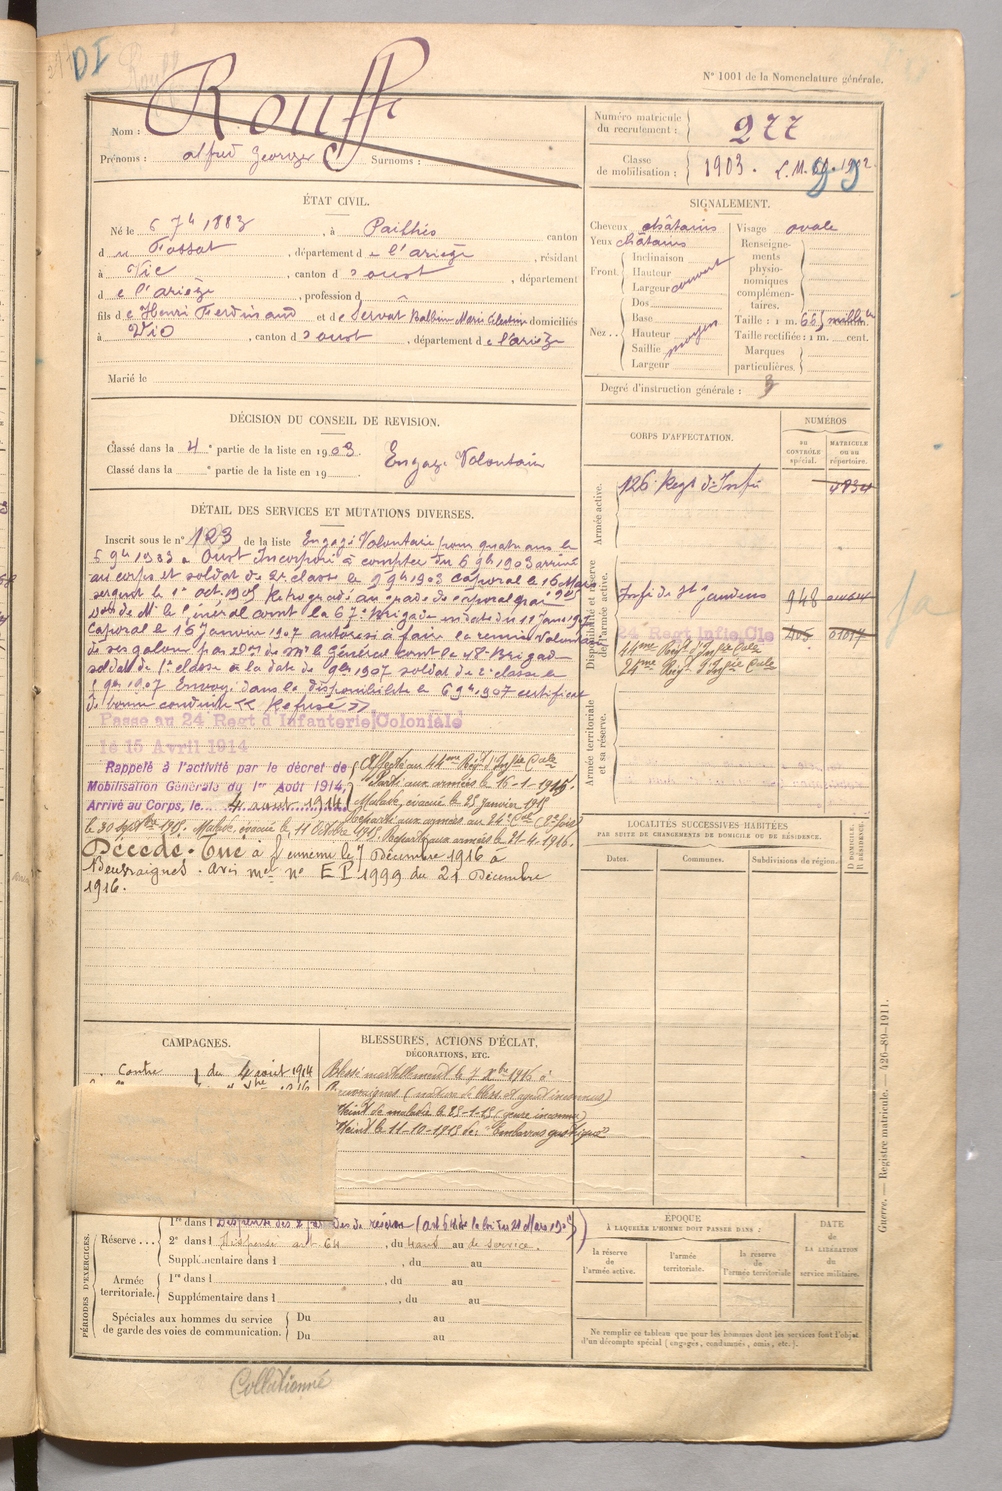 DI
N° 1001 de la Nomenclature générale.
Nom : Rouff
Prénoms : alfred Georges Surnoms :
Numéro matricule du recrutement : 277
Classe de mobilisation : 1903.
ÉTAT CIVIL.
Né le 6 7bre 1883, à Pailhès canton
du Fossat, département de l'ariège, résidant
à Vic, canton d'oust, département
de l'ariège, profession d
fils de Henri Ferdinand et de Servat Balbine Marie Célestine domiciliés
à Vic, canton d'oust, département de l'ariège
Marié le
SIGNALEMENT.
Cheveux châtains
Yeux châtains
Front. Inclinaison
Hauteur
Largeur couvert
Nez. Dos
Base
Hauteur
Saillie moyen
Largeur
Visage ovale
Renseignements physionomiques complémentaires.
Taille : 1 m. 665 millim
Taille rectifiée : 1 m. cent.
Marques particulières.
Degré d'instruction générale : 3
DÉCISION DU CONSEIL DE REVISION.
Classé dans la 4e partie de la liste en 1903.
Classé dans la e partie de la liste en 19
Engagé Volontaire
CORPS D'AFFECTATION.
NUMÉROS
au CONTRÔLE spécial.
MATRICULE ou au répertoire.
Armée active.
126e Regt d'Infie
Disponibilité et réserve de l'armée active.
Infie de St Gaudens 948
24 Regt Infie Cle
44me Régt d'Infie Cale
24me Régt d'Infie Cale
Armée territoriale et sa réserve.
DÉTAIL DES SERVICES ET MUTATIONS DIVERSES.
Inscrit sous le n° 123 de la liste Engagé Volontaire pour quatre ans le
6 9bre 1903 à Oust Incorporé à compter du 6 9bre 1903 arrivé
au corps et soldat de 2e classe le 9 9bre 1903 Caporal le 16 Mars
sergent le 1er oct. 1905 Retrogradé au grade de caporal par
don de Mr le Général comt la 67e Brigade en date du 11 Janv 1907
Caporal le 16 Janvier 1907 autorisé à faire la remise Volontaire
de ses galons par don de Mr le Général comt la 48e Brigade
soldat de 1e classe à la date de 9bre 1907 soldat de 2e classe le
9bre 1907 Envoyé dans la disponibilité le 6 9bre 1907 certificat
de bonne conduite « Refusé »
Passé au 24 Regt d Infanterie Coloniale
le 15 Avril 1914
Rappelé à l'activité par le décret de
Mobilisation Générale du 1er Août 1914,
Arrivé au Corps, le 4 aout 1914
Affecté au 44me Régt d'Infie Cale
Parti aux armées le 16-1-1915.
Malade, évacué le 25 janvier 1915
Reparti aux armées au 24e Cal (2e fois)
le 30 septbre 1915. Malade, évacué le 11 Octobre 1915 Reparti aux armées le 21-4-1916.
Décédé. Tué à l'ennemi le 7 Décembre 1916 à
Beuvraignes. Avis mel n° EP 1999 du 21 Décembre
1916.
LOCALITÉS SUCCESSIVES HABITÉES
PAR SUITE DE CHANGEMENTS DE DOMICILE OU DE RÉSIDENCE.
Dates.
Communes.
Subdivisions de région.
D DOMICILE. R RÉSIDENCE
CAMPAGNES.
Contre du 4 août 1914
BLESSURES, ACTIONS D'ÉCLAT,
DÉCORATIONS, ETC.
Blessé mortellement le 7 Xbre 1916 à
Beuvraignes (nature de bless. et agent inconnus)
Atteint de maladie le 25-1-15 (genre inconnu)
Atteint le 11-10-1915 de: "Embarras gastrique"
PÉRIODES D'EXERCICES.
Réserve... 1re dans l Dispensé des 2 périodes de réserve (art de la loi du 21 Mars 1905)
2e dans l Dispensé art 64, du 4 ans au de service.
Supplémentaire dans l, du au
Armée territoriale. 1re dans l, du au
Supplémentaire dans l, du au
Spéciales aux hommes du service de garde des voies de communication. Du au
Du au
EPOQUE
À LAQUELLE L'HOMME DOIT PASSER DANS :
la réserve de l'armée active.
l'armée territoriale.
la réserve de l'armée territoriale
DATE de LA LIBÉRATION du service militaire.
Ne remplir ce tableau que pour les hommes dont les services font l'objet
d'un décompte spécial (engagés, condamnés, omis, etc.).
Guerre. — Registre matricule. — 426-89-1911.
Collationné